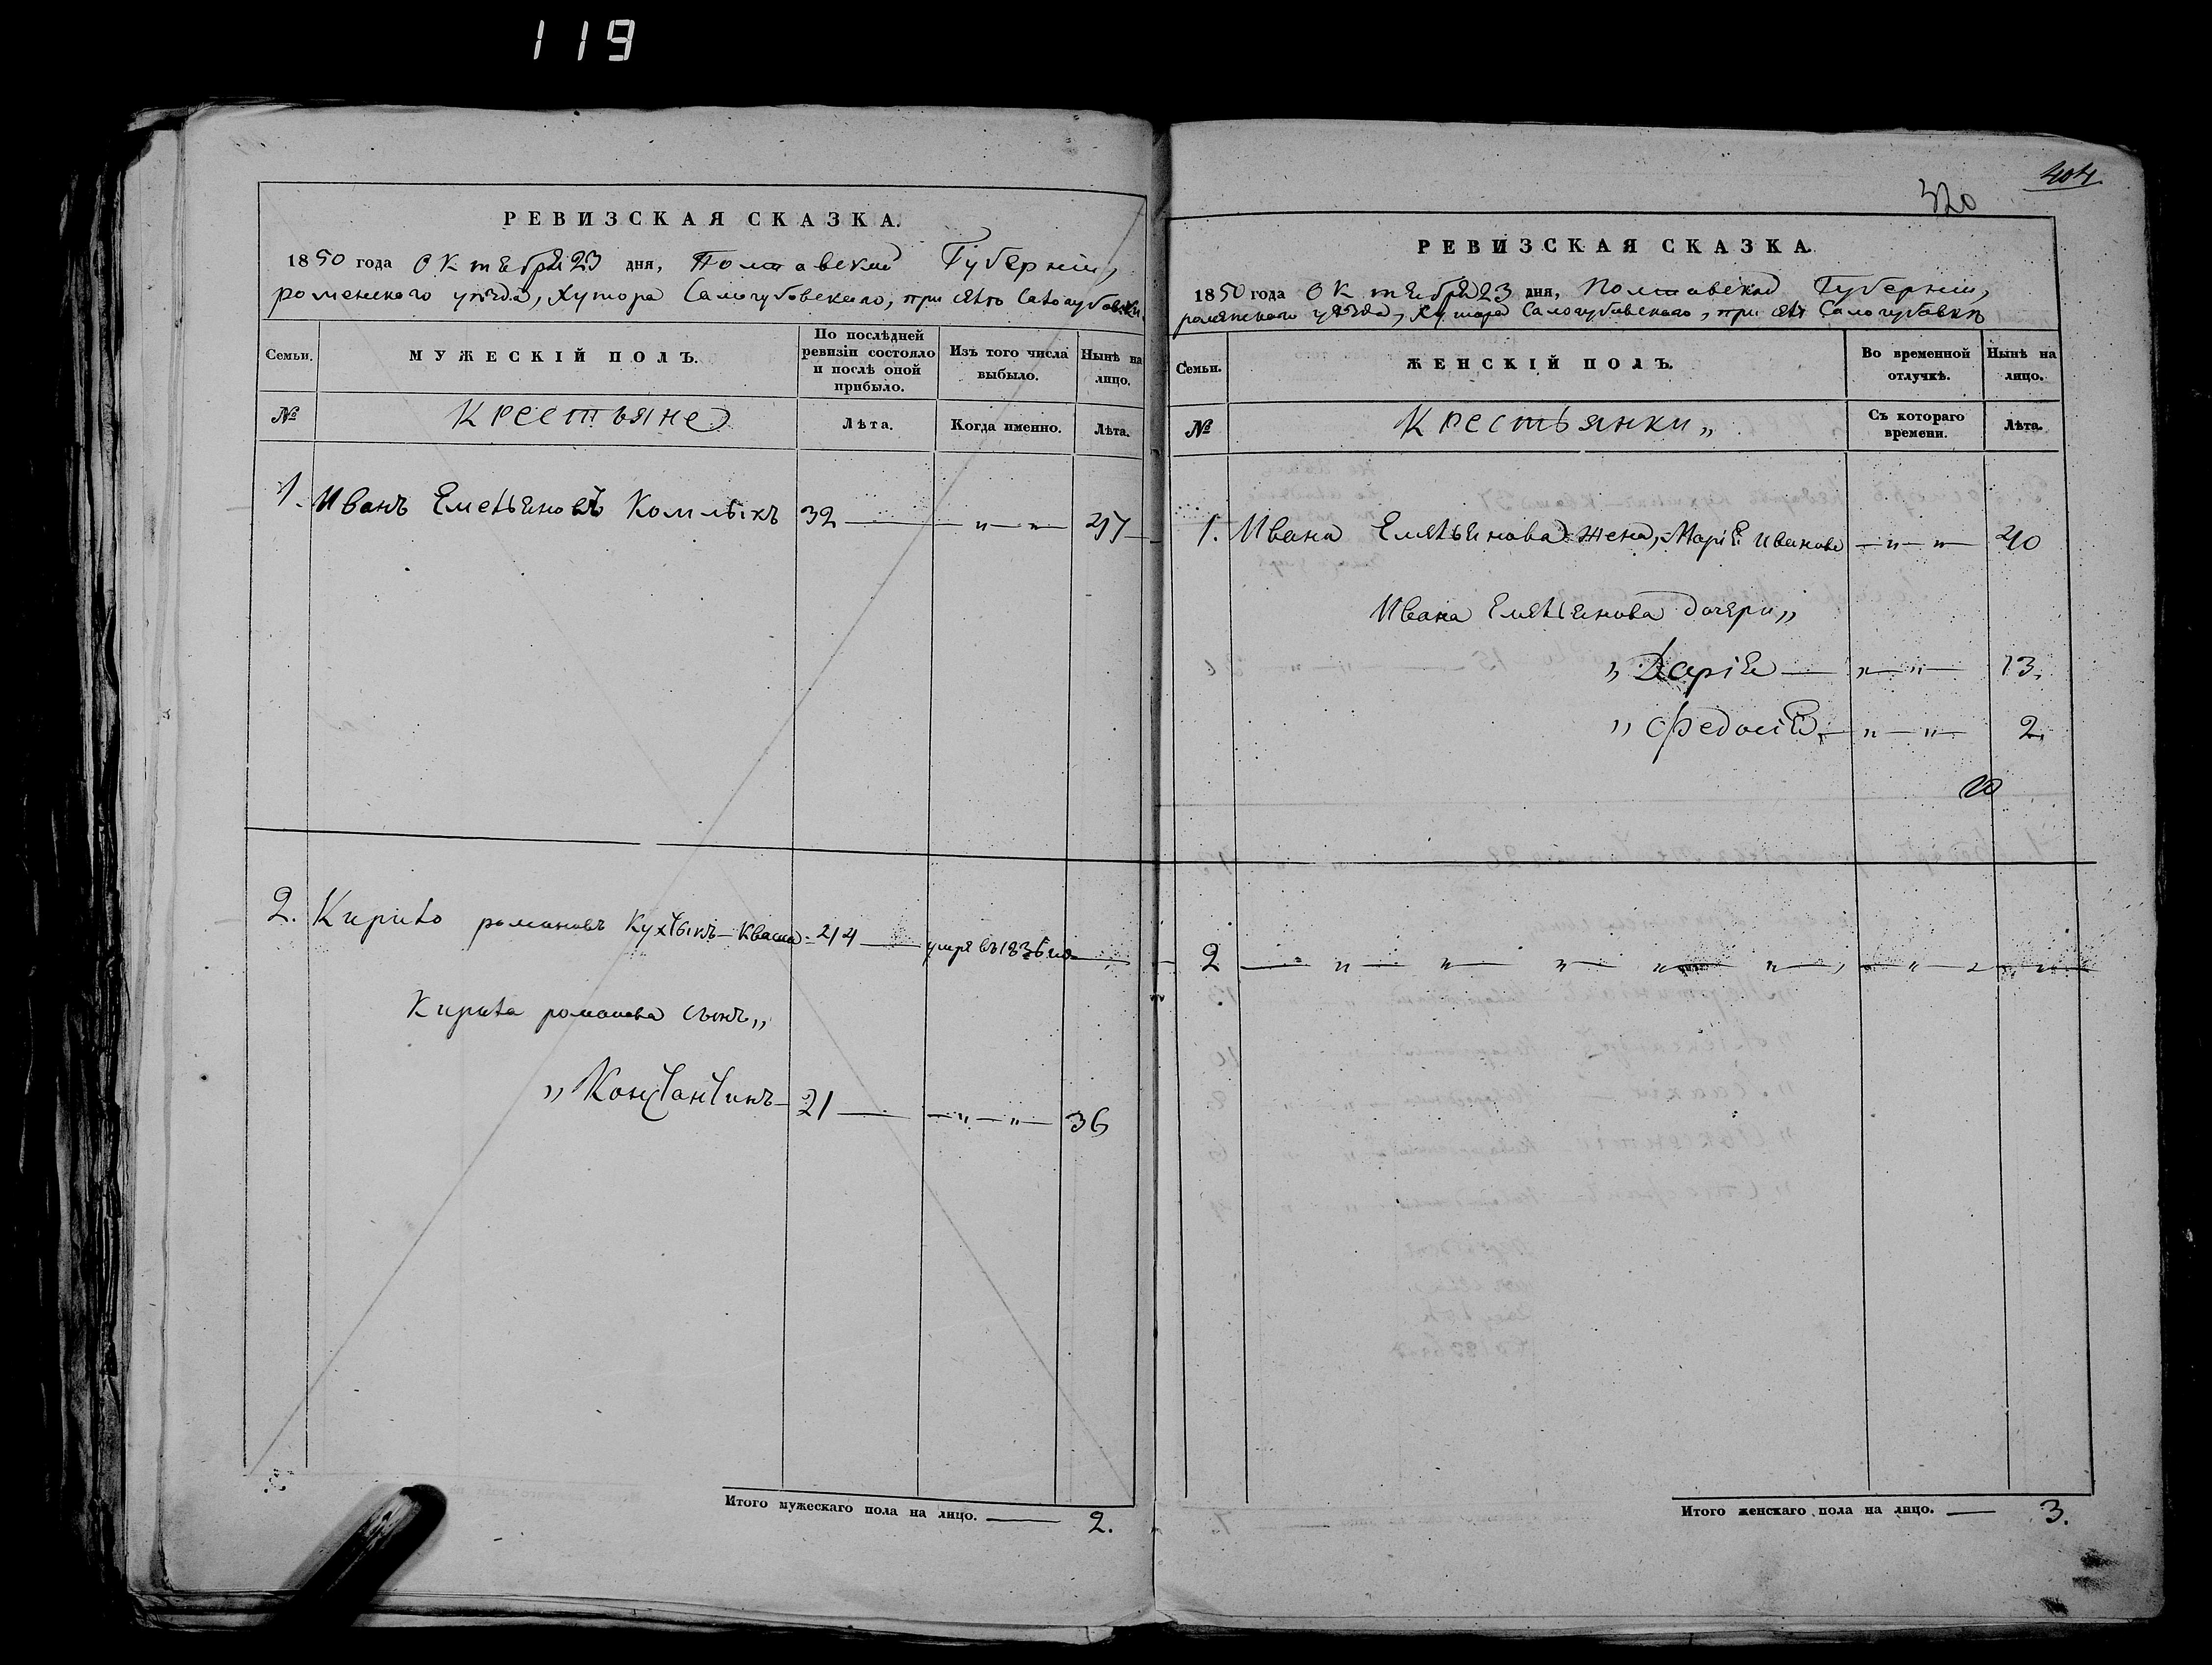 119
РЕВИЗСКАЯ СКАЗКА.
1850 года Октебря 23 дня, Полтавской Губернии,
роменского уѣзда, Хутора Салогубовского, при селѣ Салогубовки.
Семьи.
МУЖЕСКІЙ ПОЛЪ.
По послѣдней ревизіи состояло и послѣ оной прибыло.
Изъ того числа выбыло.
Нынѣ на лицо.
№
Крестьяне
Лѣта.
Когда именно.
Лѣта.
1. Иванъ Емельеновъ 32 — „ — „ — 47
2. Кирило романовъ Кухлыкъ-Кваша умре въ 1836 го
Кирила романова сынъ„
„ Константинъ — 21 — „ — „ — 36
Итого мужескаго пола на лицо. — 2.
404
320
РЕВИЗСКАЯ СКАЗКА.
1850 года Октебря 23 дня, Полтавской Губернии,
роменского уѣзда, Хутора Салогубовского, при селѣ Салогубовкѣ
Семьи.
ЖЕНСКІЙ ПОЛЪ.
Во временной отлучкѣ.
Нынѣ на лицо.
№
Крестьянки„
Съ котораго времени.
Лѣта.
1. Ивана Емельенова жена, Маріе Иванова — „ — „ — 40
Ивана Емельенова дочери„
„ Даріе — „ — „ — 13.
„ Федосіе — „ — „ — 2.
2 — „ — „ — „ — „ — „ — „ —
Итого женскаго пола на лицо. — 3.